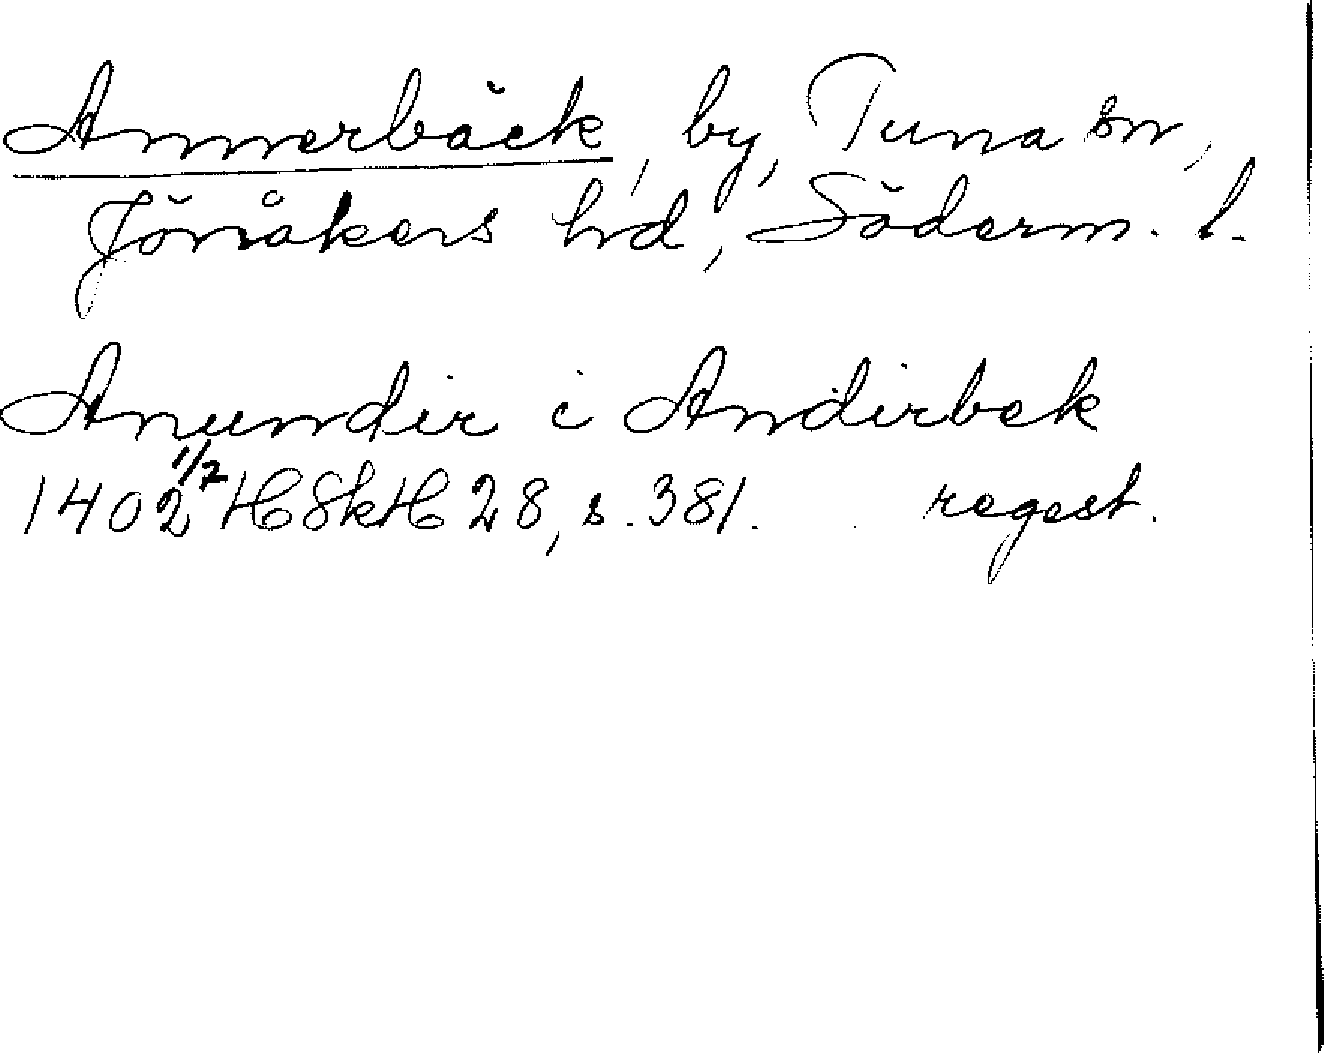 Annerbäck, by, Tuna sn,
Jönåkers hd, Söderm. l.
Anundir i Andirbek
1402 1/7 HSkH 28, s. 381. regest.